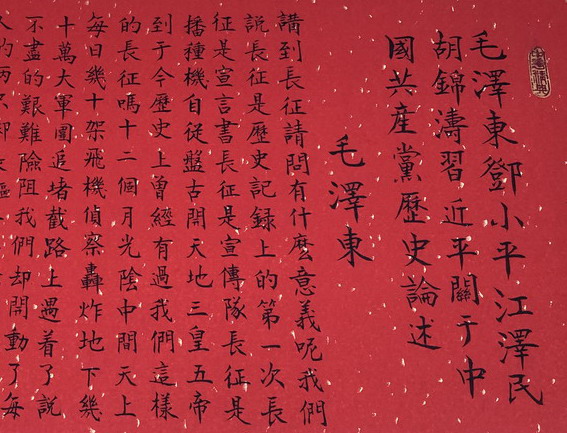 毛澤東鄧小平江澤民
胡錦濤習近平關于中
國共產黨歷史論述
毛澤東
講到長征請問有什麽意義呢我們
説長征是歷史記録上的第一次長
征是宣言書長征是宣傳隊長征是
播種機自從盤古開天地三皇五帝
到于今歷史上曾經有過我們這樣
的長征嗎十二個月光陰中間天上
每日幾十架飛機偵察轟炸地下幾
十萬大軍圍追堵截路上遇着了説
不盡的艱難險阻我們却開動了每